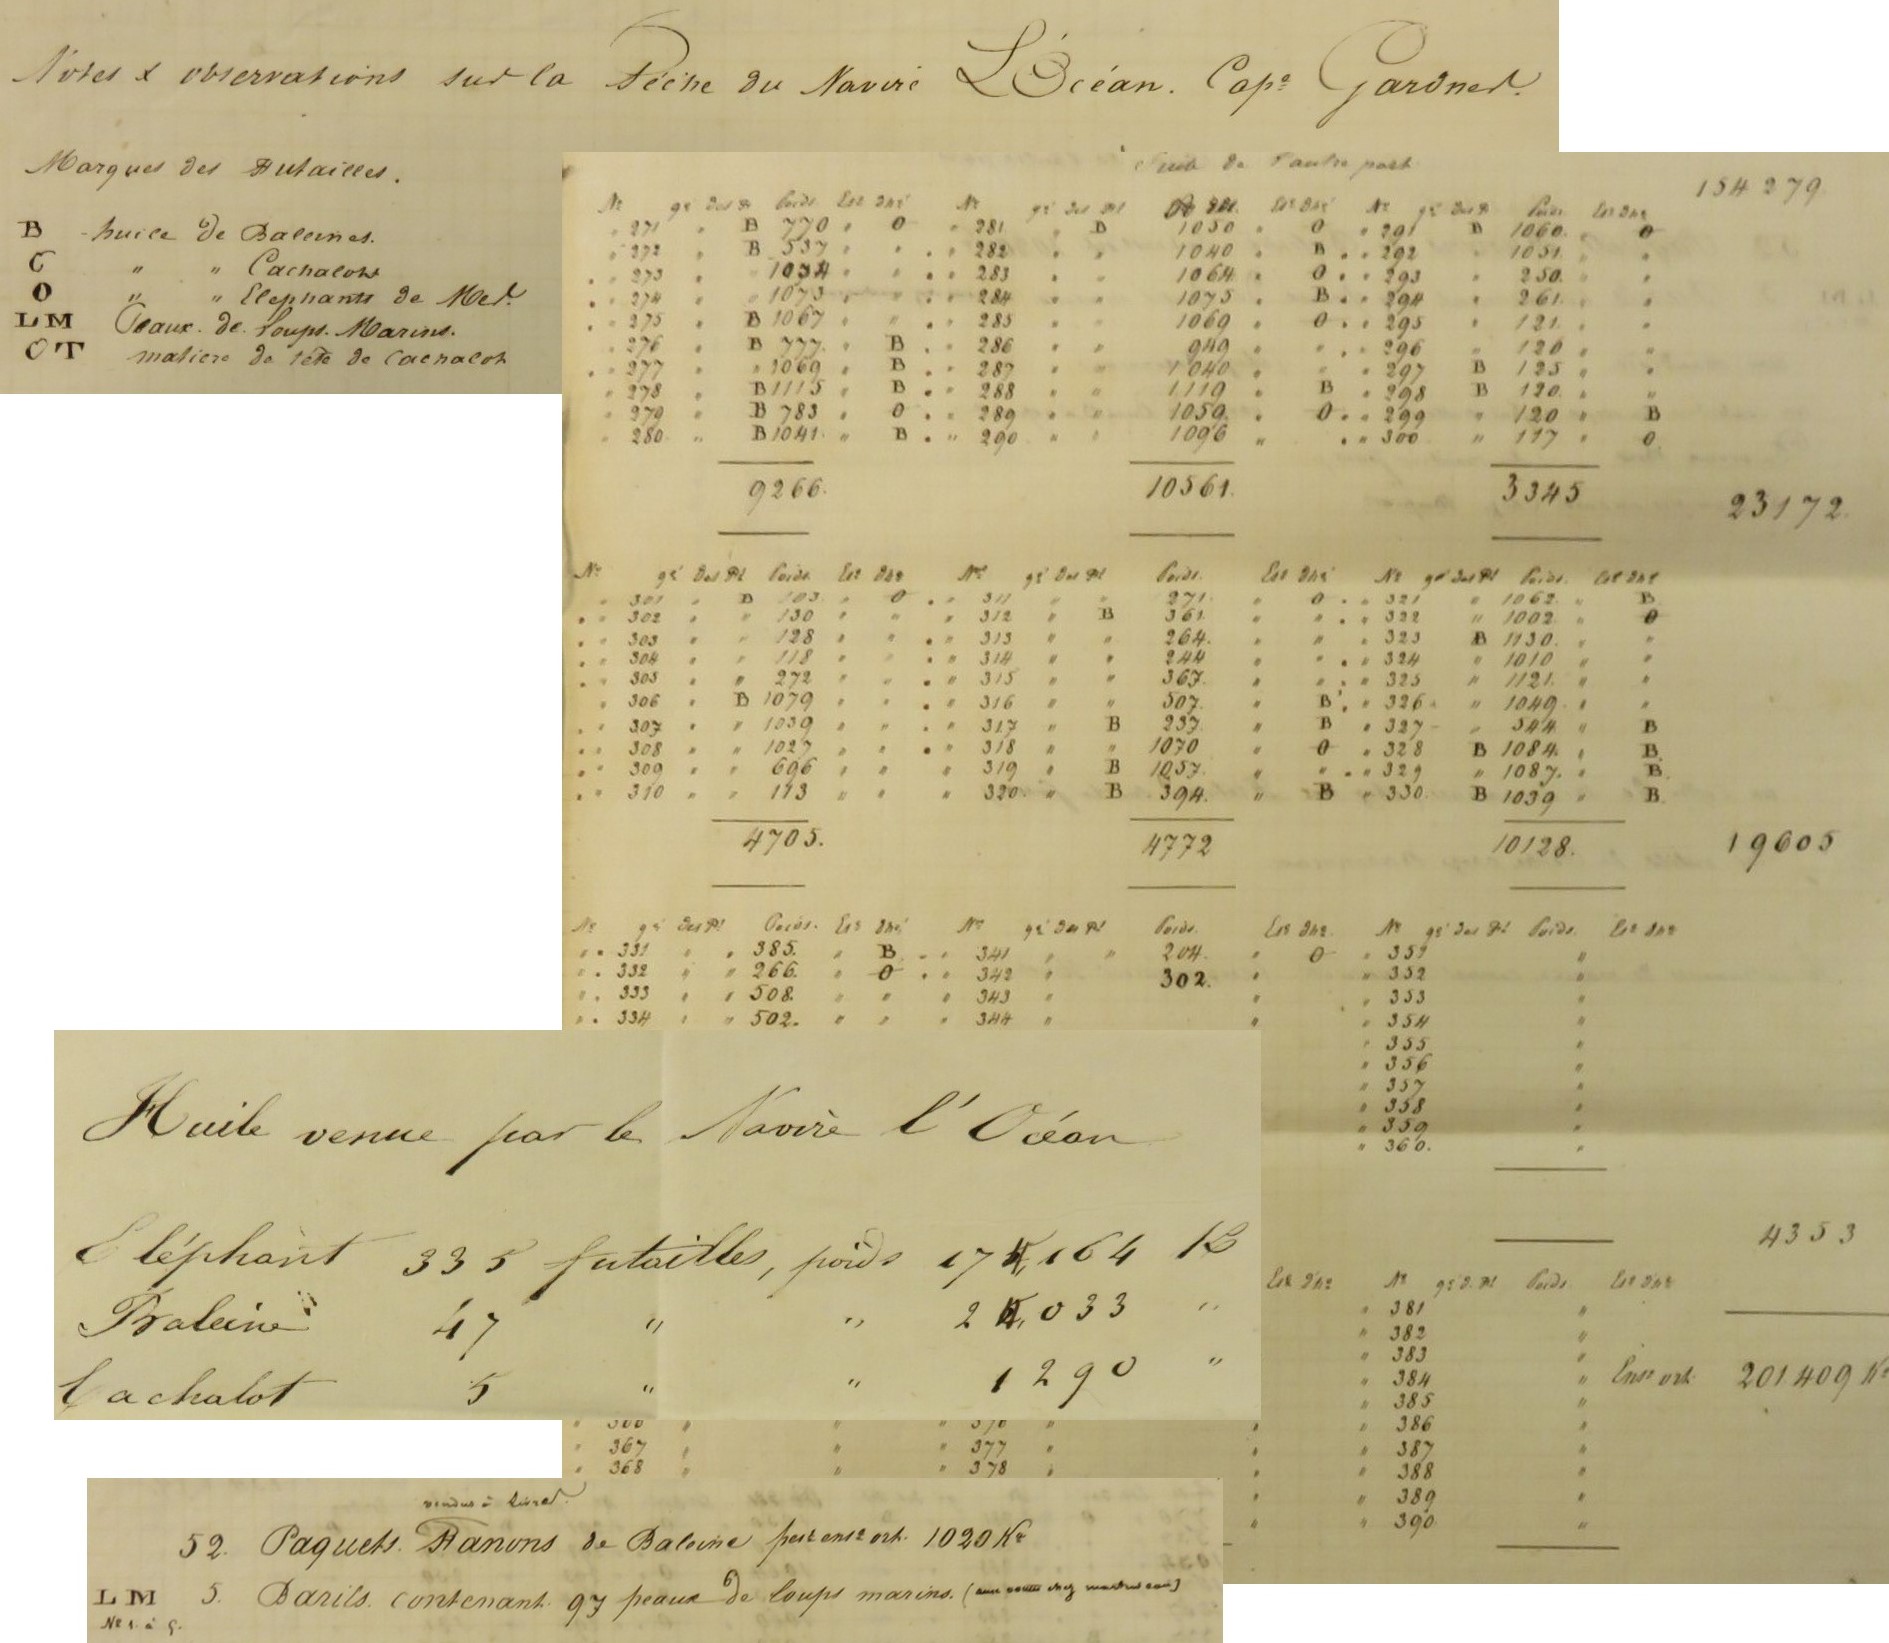 Notes & observations sur la Pêche du Navire L'Océan. Cap.e Gardner.
Marques des Futailles.
B - huile de Baleines.
C " " Cachalots
O " " Elephants de Mer.
LM Peaux. de. loups. Marins.
OT matiere de tête de Cachalot
Suite de l'autre part 154279
N° Poids N° N° Poids
" 271 " B 770 " O " 281 " B 1050 " O " 291 B 1060. O
" 272 " B 537 " " " 282 " " 1040 B " 292 " 1051. "
" 273 " " 1034 " " " 283 " " 1064 O " 293 " 250. "
" 274 " " 1073 " " " 284 " " 1075 B " 294 " 261. "
" 275 B 1067 " " " 285 " " 1069 O " 295 " 121. "
" 276 B 777. " B " 286 " " 949 " " " 296 " 120 "
" 277 " 1069 " B " 287 " " 1040 " " " 297 B 125 "
" 278 B 1115 " B " 288 " " 1119 B " 298 B 120. "
" 279 B 783 " O " 289 " " 1059. O " 299 " 120 " B
" 280 " B 1041. " B " 290 " " 1096 " " 300 " 117 " O
9266. 10561. 3345 23172.
N° Poids N° Poids. N° Poids.
" 301 " B 103. " O " 311 " " 271. " O " 321 " 1062. " B
" 302 " " 130 " " " 312 " B 361. " " " 322 " 1002. O
" 303 " " 128 " " " 313 " " 264. " " " 323 B 1130. " "
" 304 " " 118 " " " 314 " " 244 " " " 324 " 1010 " "
" 305 " " 272 " " " 315 " " 367. " " " 325 " 1121. " "
" 306 B 1079 " " " 316 " " 507. B " 326 " 1049. "
" 307 " " 1039 " " " 317 " B 237. " B " 327 " 344. B
" 308 " " 1027 " " " 318 " " 1070 " O " 328 B 1084. " B
" 309 " " 696 " " " 319 " B 1057. " " " 329 " 1087. " B.
" 310 " " 113 " " " 320. " B 394. " B " 330. B 1039 " B.
4705. 4772 10128. 19605
N° Poids. N° Poids. N° Poids.
" 331 " " 385. " B " 341 " " 204. " O " 351 "
" 332 " " 266. O " 342 " 302. " " 352 "
" 333 " " 508. " " " 343 " " " 353 "
" 334 " " 502. " " " 344 " " " 354 "
" 355 "
" 356 "
" 357 "
" 358 "
" 359 "
" 360. "
4353
Huile venue par le Navire l'Océan
Eléphant 335 futailles, poids 17 ,164 K
Baleine 47 " " 2 ,033 "
Cachalot 5 " " 1290 "
N° Poids
" 381 "
" 382 "
" 383 "
" 384 " Ens. ort. 201409 K°
" 385 "
" 386 "
" 367 " " " 377 " " " 387 "
" 368 " " " 378 " " " 388 "
" 389 "
" 390. "
vendus à livrer.
52. Paquets. Fanons de Baleine pest ens.e ort. 1020 K°
LM 5. Barils. contenant. 97 peaux de loups marins.
N° 1. à 5.